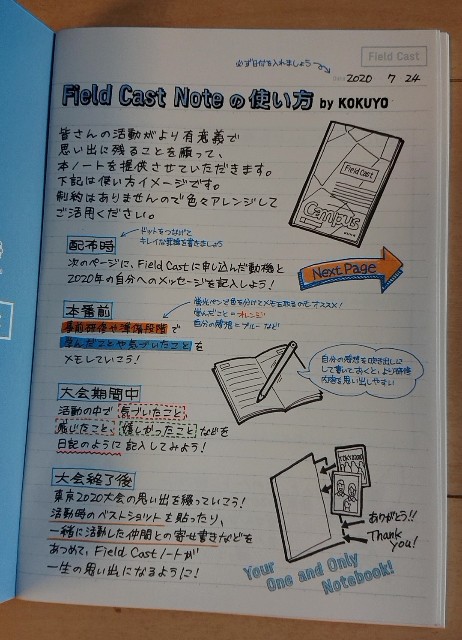 必ず日付を入れましょう
Field Cast
Date 2020 7 24
Field Cast Note の使い方 by KOKUYO
皆さんの活動がより有意義で
思い出に残ることを願って、
本ノートを提供させていただきます。
下記は使い方イメージです。
制約はありませんので色々アレンジして
ご活用ください。
Field Cast
Campus
配布時
ドットをつなげて
キレイな罫線を書きましょう
次のページに、Field Castに申し込んだ動機と
2020年の自分へのメッセージを記入しよう!
Next Page
本番前
蛍光ペンで色を分けてメモを取るのもオススメ!
学んだこと=オレンジ
自分の感想=ブルー など
事前研修や準備段階で
学んだことや気づいたことを
メモしていこう!
自分の感想を吹き出しに
して書いておくと、より研修
内容を思い出しやすい
大会期間中
活動の中で 気づいたこと、
感じたこと、嬉しかったこと などを
日記のように 記入してみよう!
大会終了後
東京2020大会の思い出を綴っていこう!
活動時のベストショットを貼ったり、
一緒に活動した仲間との寄せ書きなどを
あつめて、Field Castノートが
一生の思い出になるように!
TOKYO2020
ありがとう!!
Thank you!
Your
One and Only
Notebook!